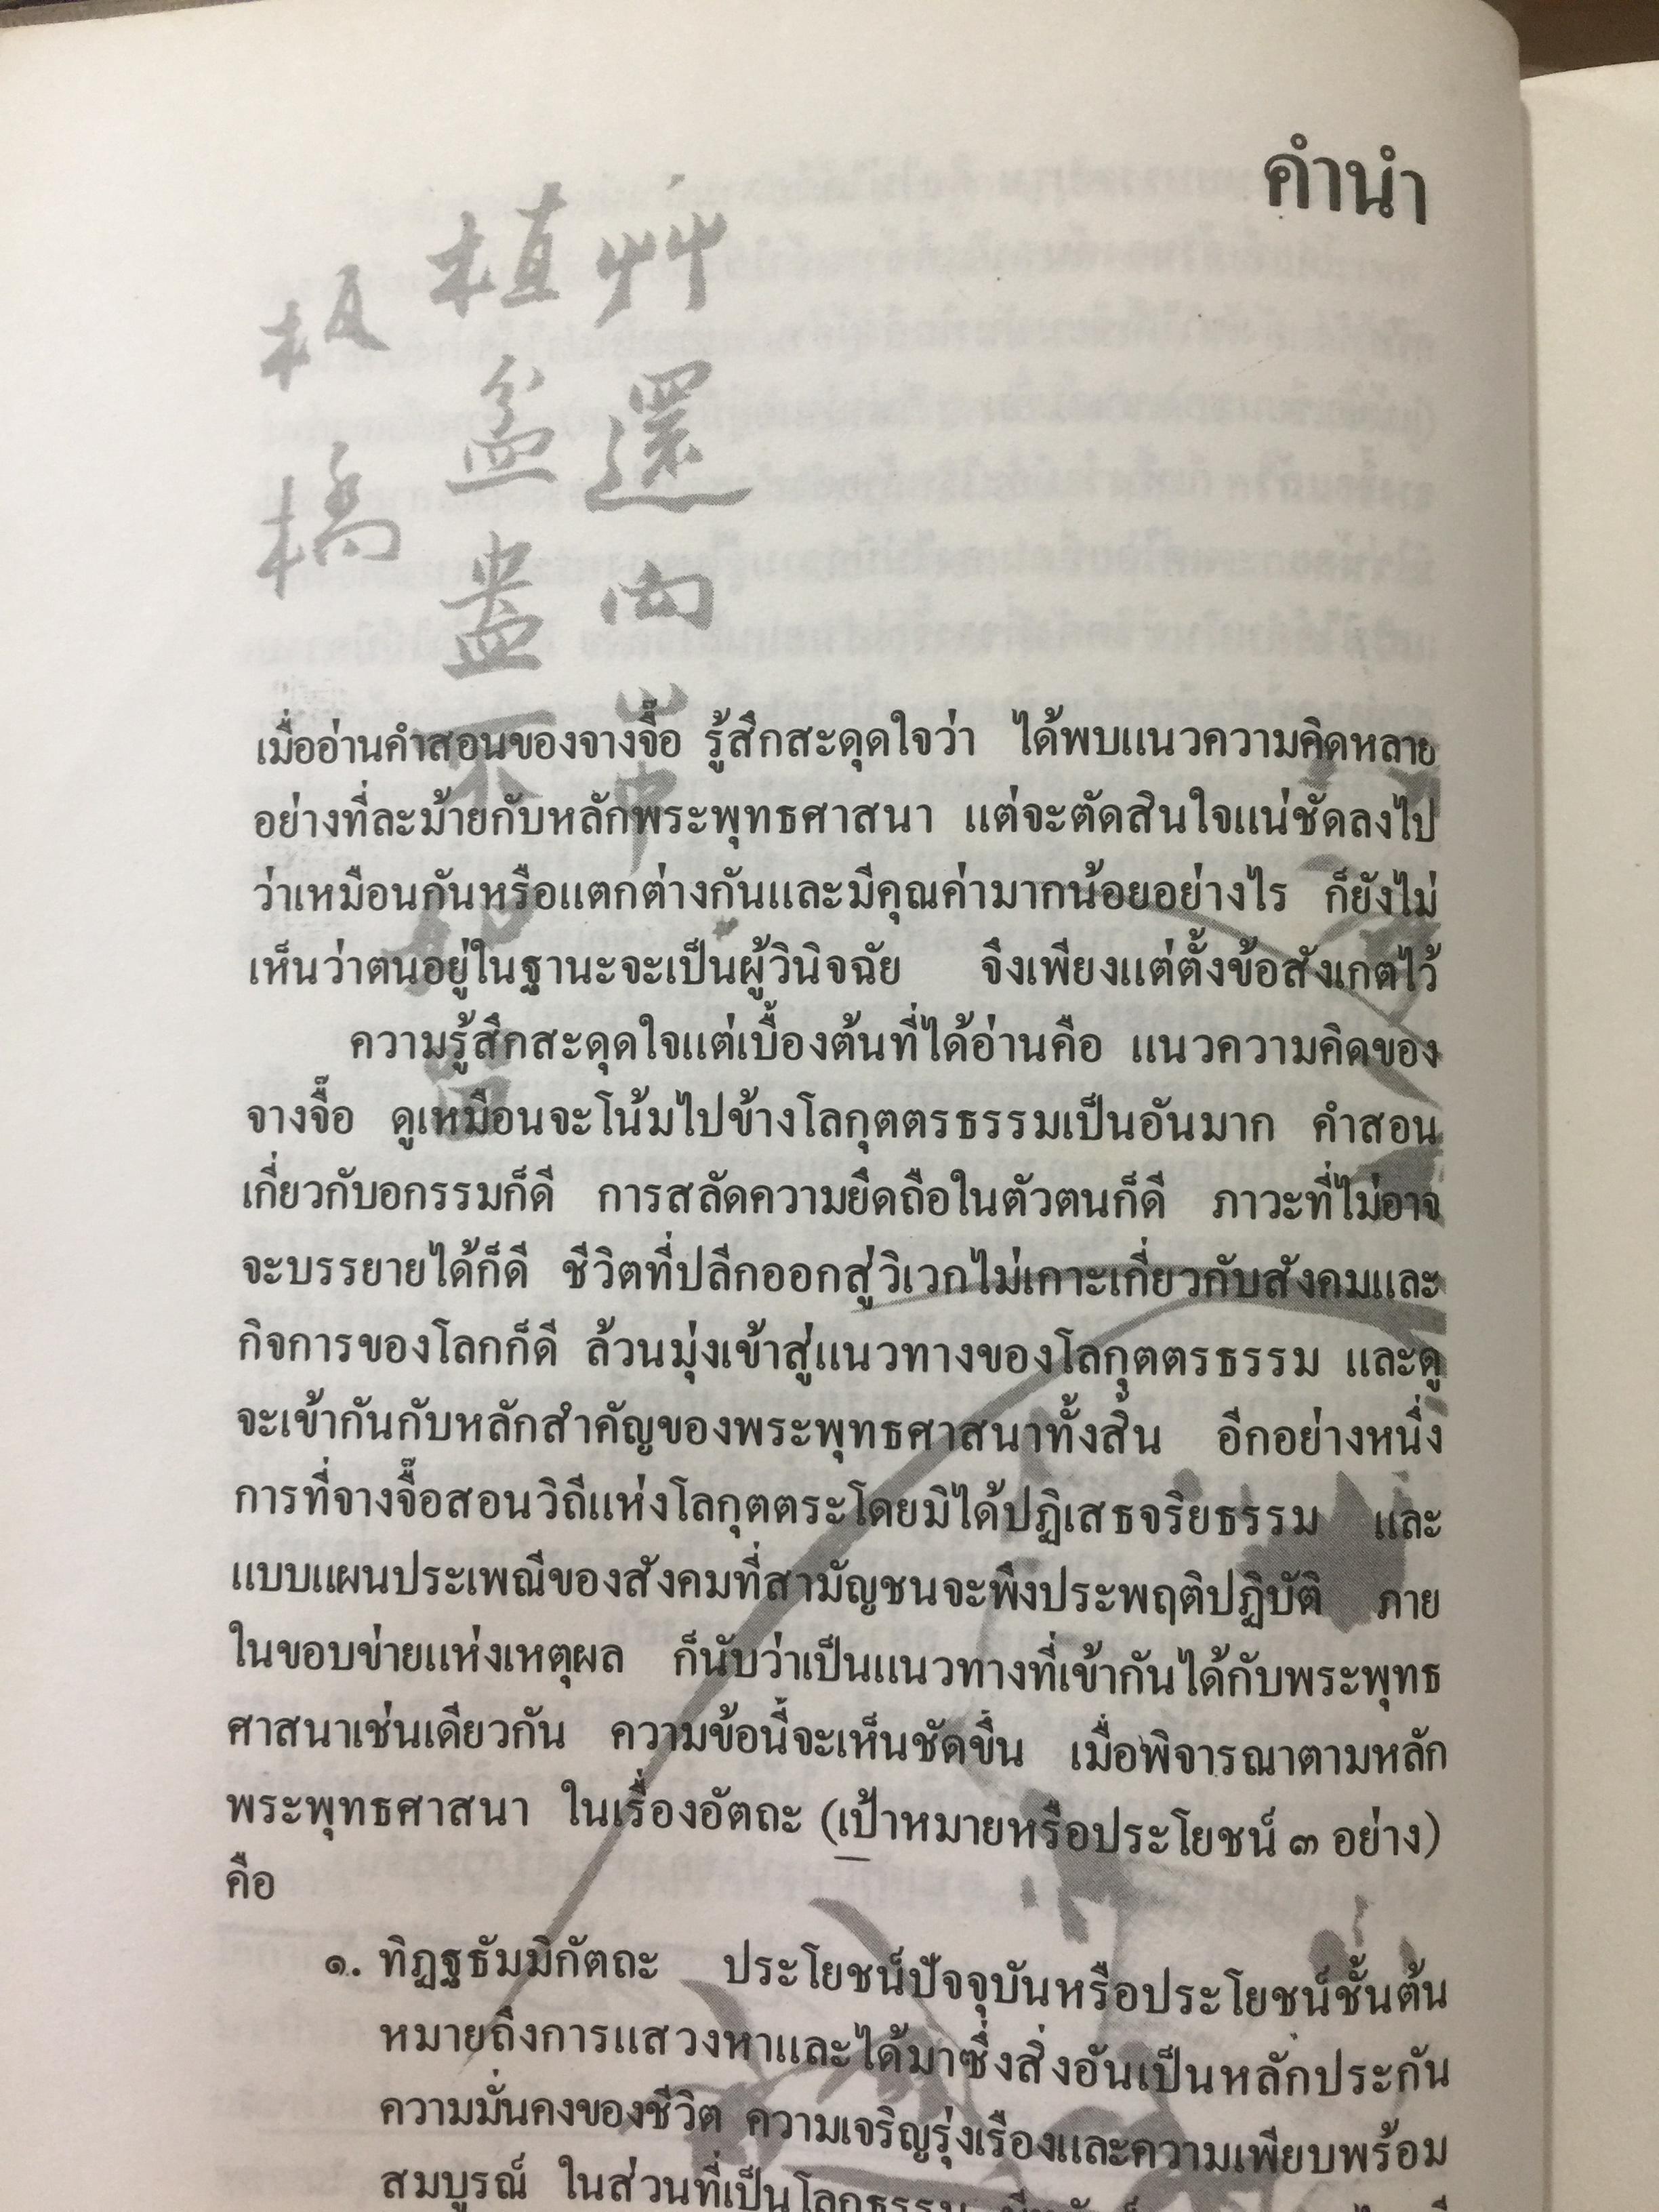 คำนำ
艸還
植盆
板橋
เมื่ออ่านคำสอนของจางจื๊อ รู้สึกสะดุดใจว่า ได้พบแนวความคิดหลาย
อย่างที่ละม้ายกับหลักพระพุทธศาสนา แต่จะตัดสินใจแน่ชัดลงไป
ว่าเหมือนกันหรือแตกต่างกันและมีคุณค่ามากน้อยอย่างไร ก็ยังไม่
เห็นว่าตนอยู่ในฐานะจะเป็นผู้วินิจฉัย จึงเพียงแต่ตั้งข้อสังเกตไว้
ความรู้สึกสะดุดใจแต่เบื้องต้นที่ได้อ่านคือ แนวความคิดของ
จางจื๊อ ดูเหมือนจะโน้มไปข้างโลกุตตรธรรมเป็นอันมาก คำสอน
เกี่ยวกับอกรรมก็ดี การสลัดความยึดถือในตัวตนก็ดี ภาวะที่ไม่อาจ
จะบรรยายได้ก็ดี ชีวิตที่ปลีกออกสู่วิเวกไม่เกาะเกี่ยวกับสังคมและ
กิจการของโลกก็ดี ล้วนมุ่งเข้าสู่แนวทางของโลกุตตรธรรม และดู
จะเข้ากันกับหลักสำคัญของพระพุทธศาสนาทั้งสิ้น อีกอย่างหนึ่ง
การที่จางจื๊อสอนวิถีแห่งโลกุตตระโดยมิได้ปฏิเสธจริยธรรม และ
แบบแผนประเพณีของสังคมที่สามัญชนจะพึงประพฤติปฏิบัติ ภาย
ในขอบข่ายแห่งเหตุผล ก็นับว่าเป็นแนวทางที่เข้ากันได้กับพระพุทธ
ศาสนาเช่นเดียวกัน ความข้อนี้จะเห็นชัดขึ้น เมื่อพิจารณาตามหลัก
พระพุทธศาสนา ในเรื่องอัตถะ (เป้าหมายหรือประโยชน์ ๓ อย่าง)
คือ
๑. ทิฏฐธัมมิกัตถะ ประโยชน์ปัจจุบันหรือประโยชน์ชั้นต้น
หมายถึงการแสวงหาและได้มาซึ่งสิ่งอันเป็นหลักประกัน
ความมั่นคงของชีวิต ความเจริญรุ่งเรืองและความเพียบพร้อม
สมบูรณ์ ในส่วนที่เป็นโลกธรรม